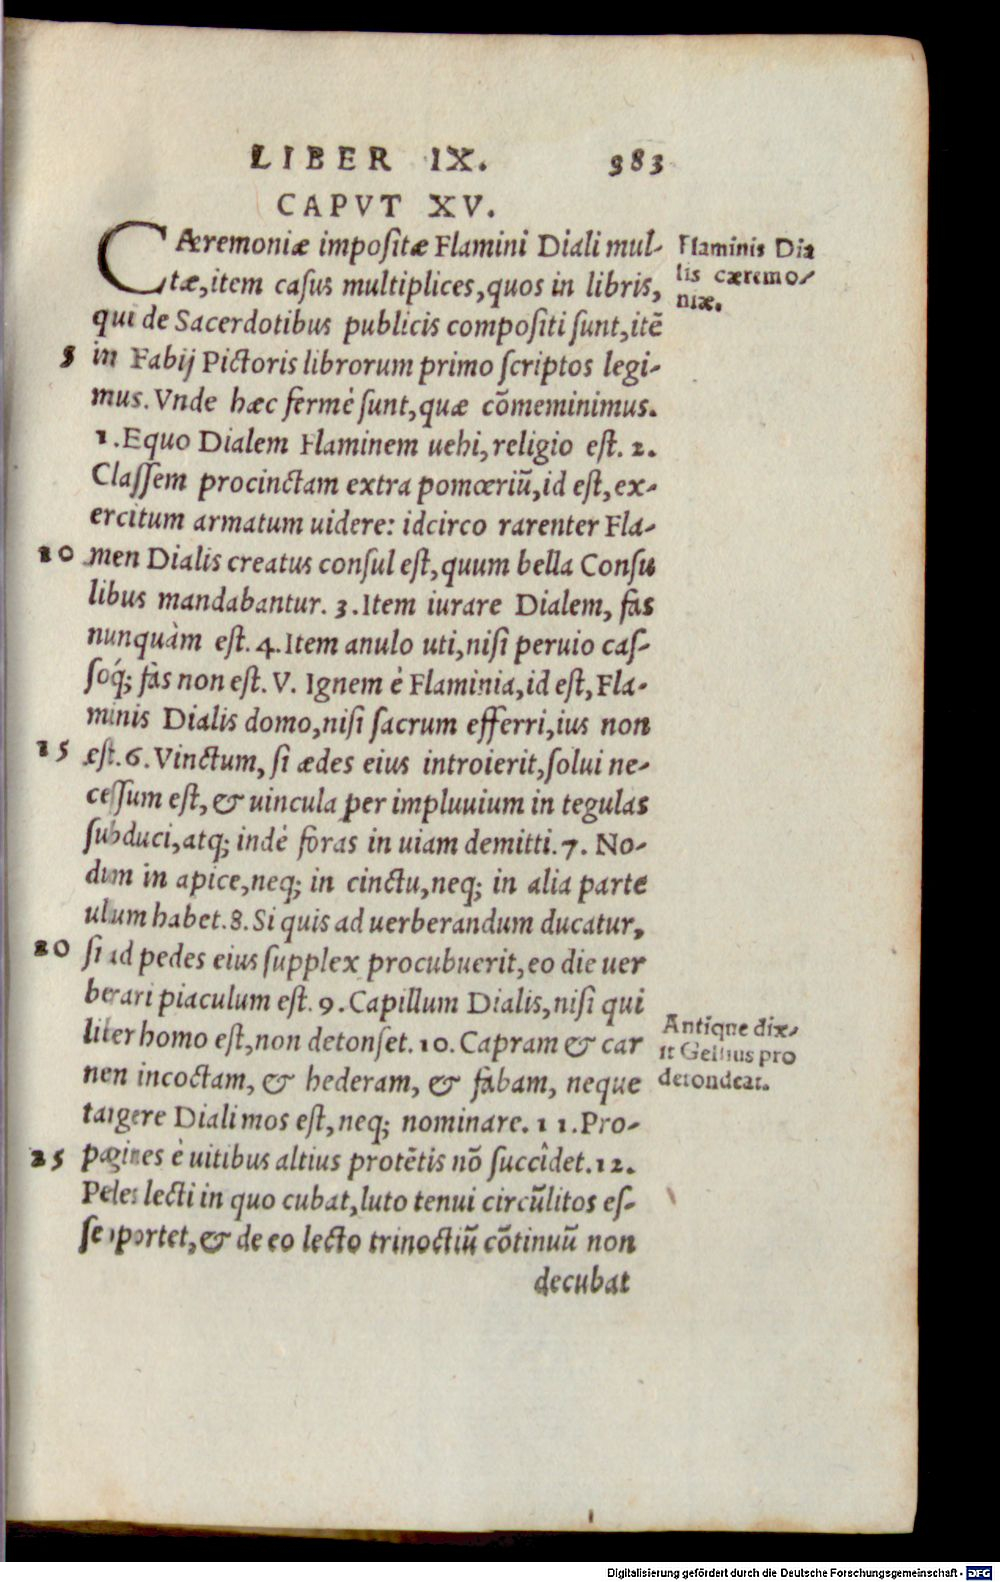 LIBER IX. 983
CAPVT XV.
CÆremoniæ impositæ Flamini Diali mul-
tæ, item casus multiplices, quos in libris,
qui de Sacerdotibus publicis compositi sunt, itẽ
5 in Fabij Pictoris librorum primo scriptos legi-
mus. Vnde hæc fermè sunt, quæ cõmeminimus.
1. Equo Dialem Flaminem uehi, religio est. 2.
Classem procinctam extra pomœriũ, id est, ex-
ercitum armatum uidere: idcirco rarenter Fla-
10 men Dialis creatus consul est, quum bella Consu
libus mandabantur. 3. Item iurare Dialem, fas
nunquàm est. 4. Item anulo uti, nisi peruio cas-
soq́; fas non est. V. Ignem è Flaminia, id est, Fla-
minis Dialis domo, nisi sacrum efferri, ius non
15 est. 6. Vinctum, si ædes eius introierit, solui ne-
cessum est, & uincula per impluuium in tegulas
subduci, atq; indè foras in uiam demitti. 7. No-
dum in apice, neq; in cinctu, neq; in alia parte
ullum habet. 8. Si quis ad uerberandum ducatur,
20 si ad pedes eius supplex procubuerit, eo die uer
berari piaculum est. 9. Capillum Dialis, nisi qui
liber homo est, non detonset. 10. Capram & car
nen incoctam, & hederam, & fabam, neque
tangere Diali mos est, neq; nominare. 11. Pro-
25 pagines è uitibus altius protẽtis nõ succîdet. 12.
Pedes lecti in quo cubat, luto tenui circũlitos es-
se oportet, & de eo lecto trinoctiũ cõtinuũ non
decubat
Flaminis Dia
lis cæremo-
niæ.
Antique dix-
it Gellius pro
detondeat.
Digitalisierung gefördert durch die Deutsche Forschungsgemeinschaft - DFG